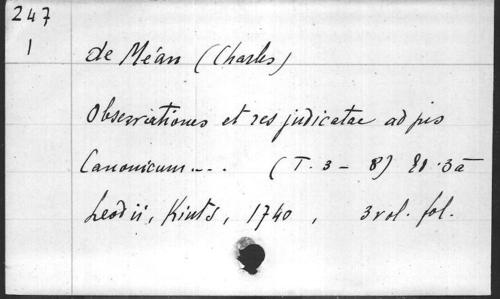 247
1
de Méan (Charles)
Observationes et res judicatae ad jus
Canonicum... (T. 3 - 8) Ed. 3a
Leodii, Kints, 1740, 3 vol. fol.